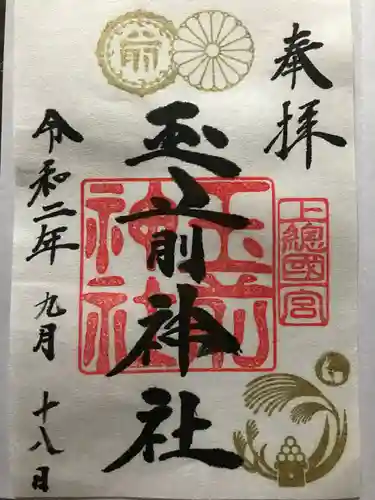 奉拝
玉前神社
令和二年 九月 十八日
上總國一宮
玉前神社
前